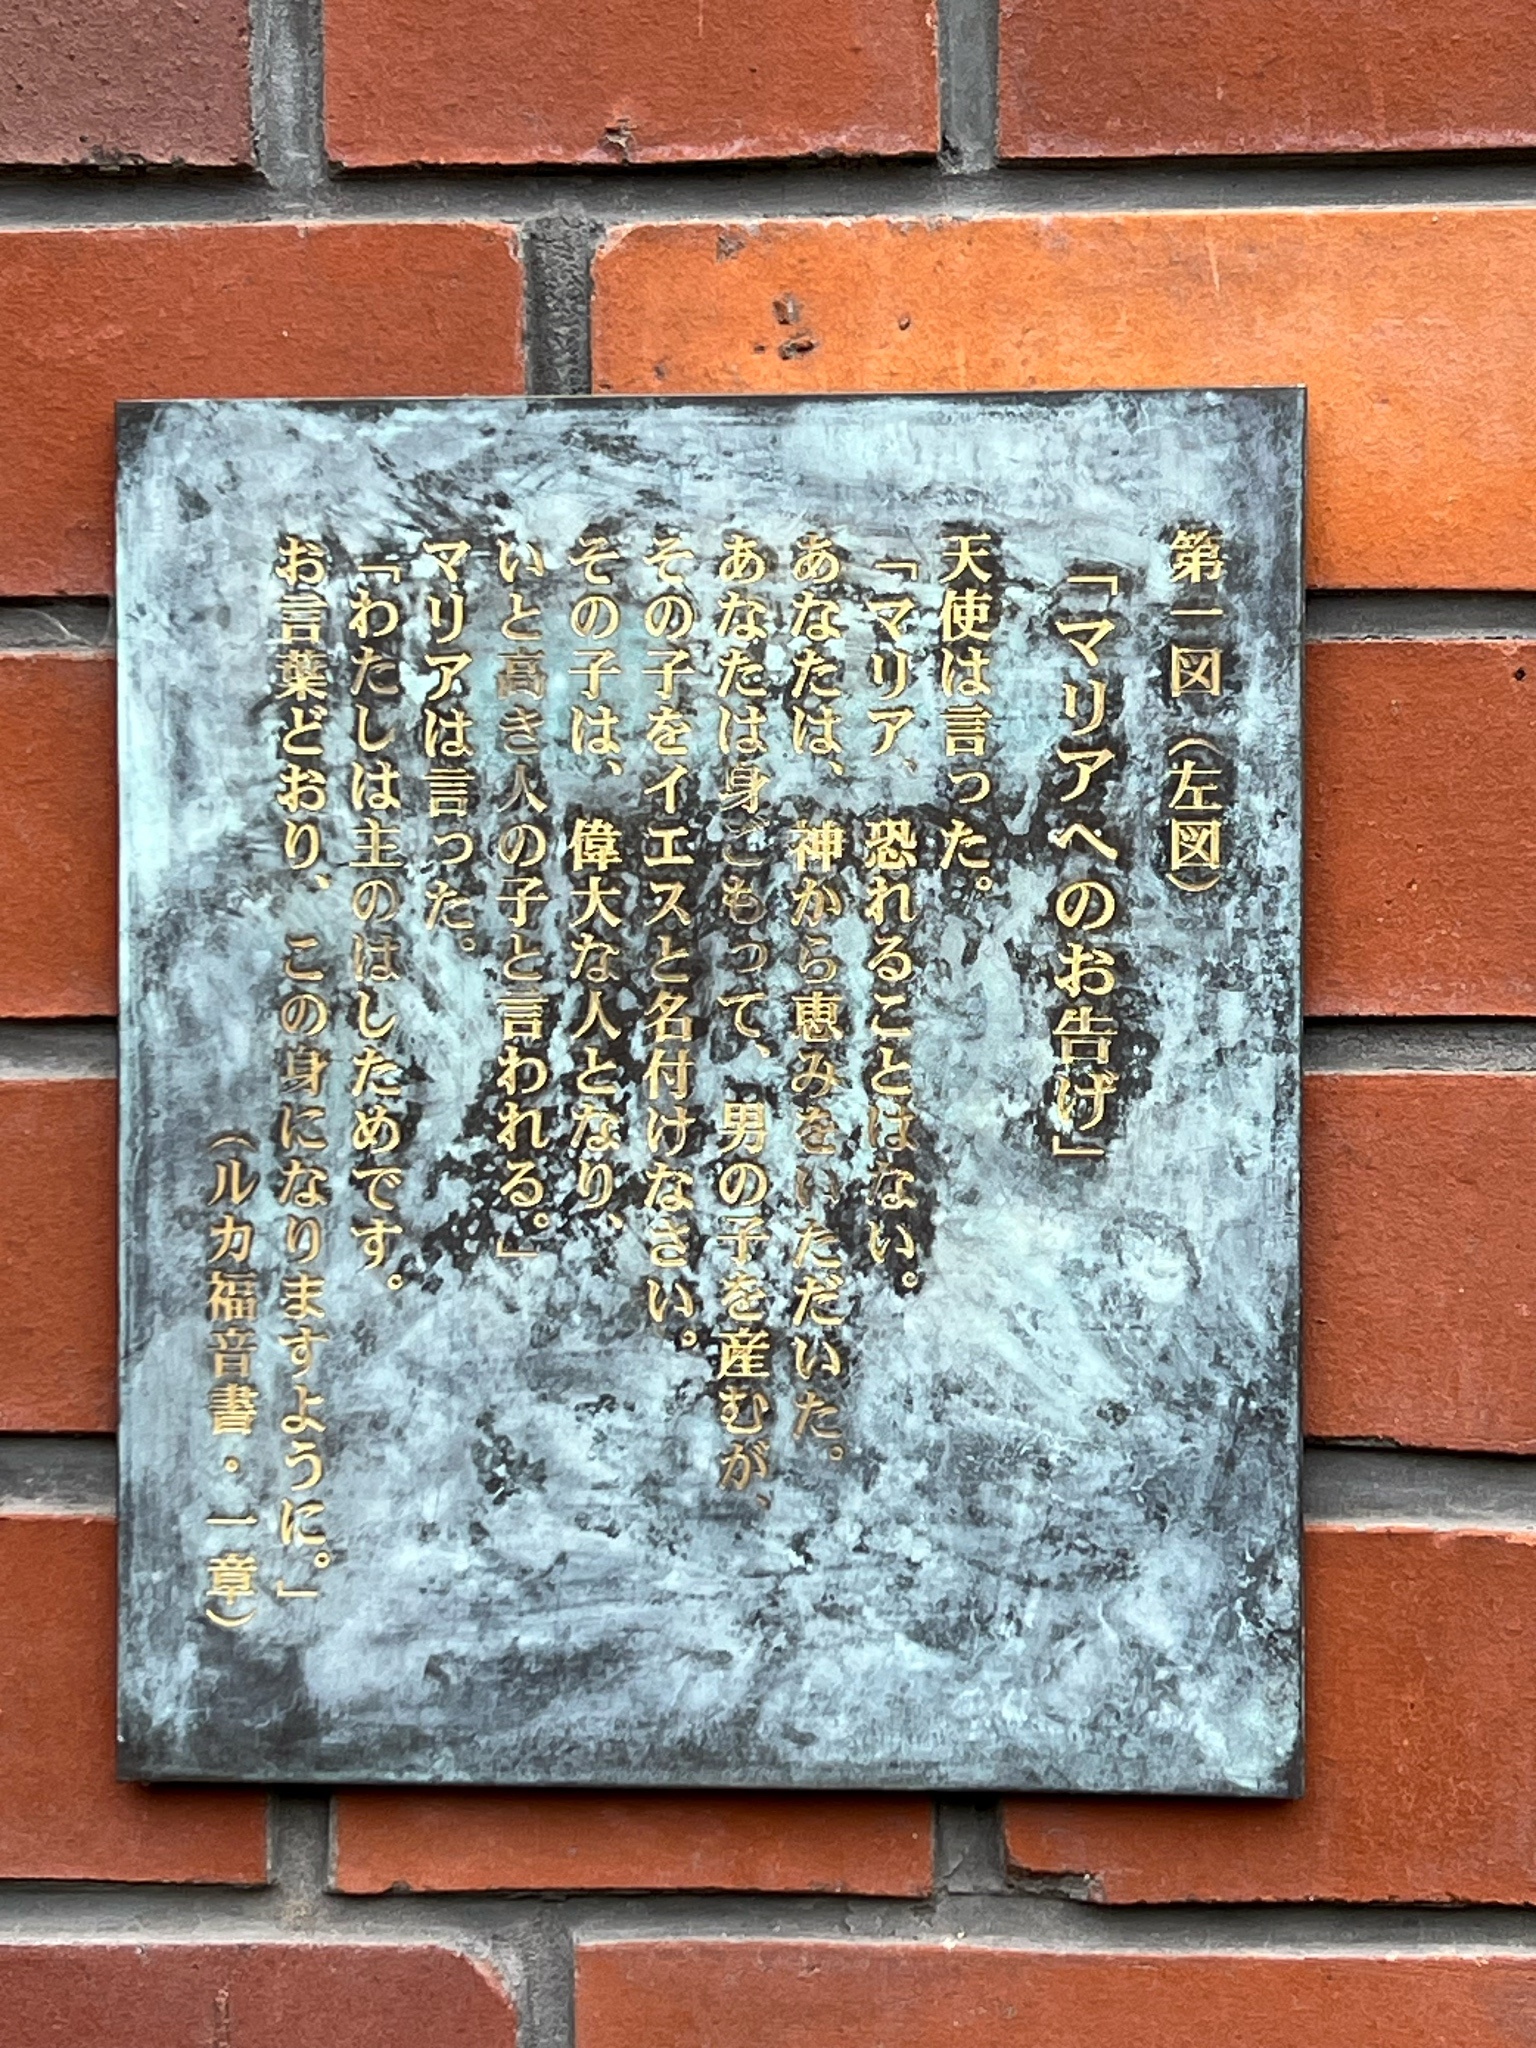 第一図（左図）
「マリアへのお告げ」
天使は言った。
「マリア、恐れることはない。
あなたは、神から恵みをいただいた。
あなたは身ごもって、男の子を産むが、
その子をイエスと名付けなさい。
その子は、偉大な人となり、
いと高き人の子と言われる。」
マリアは言った。
「わたしは主のはしためです。
お言葉どおり、この身になりますように。」
（ルカ福音書・一章）